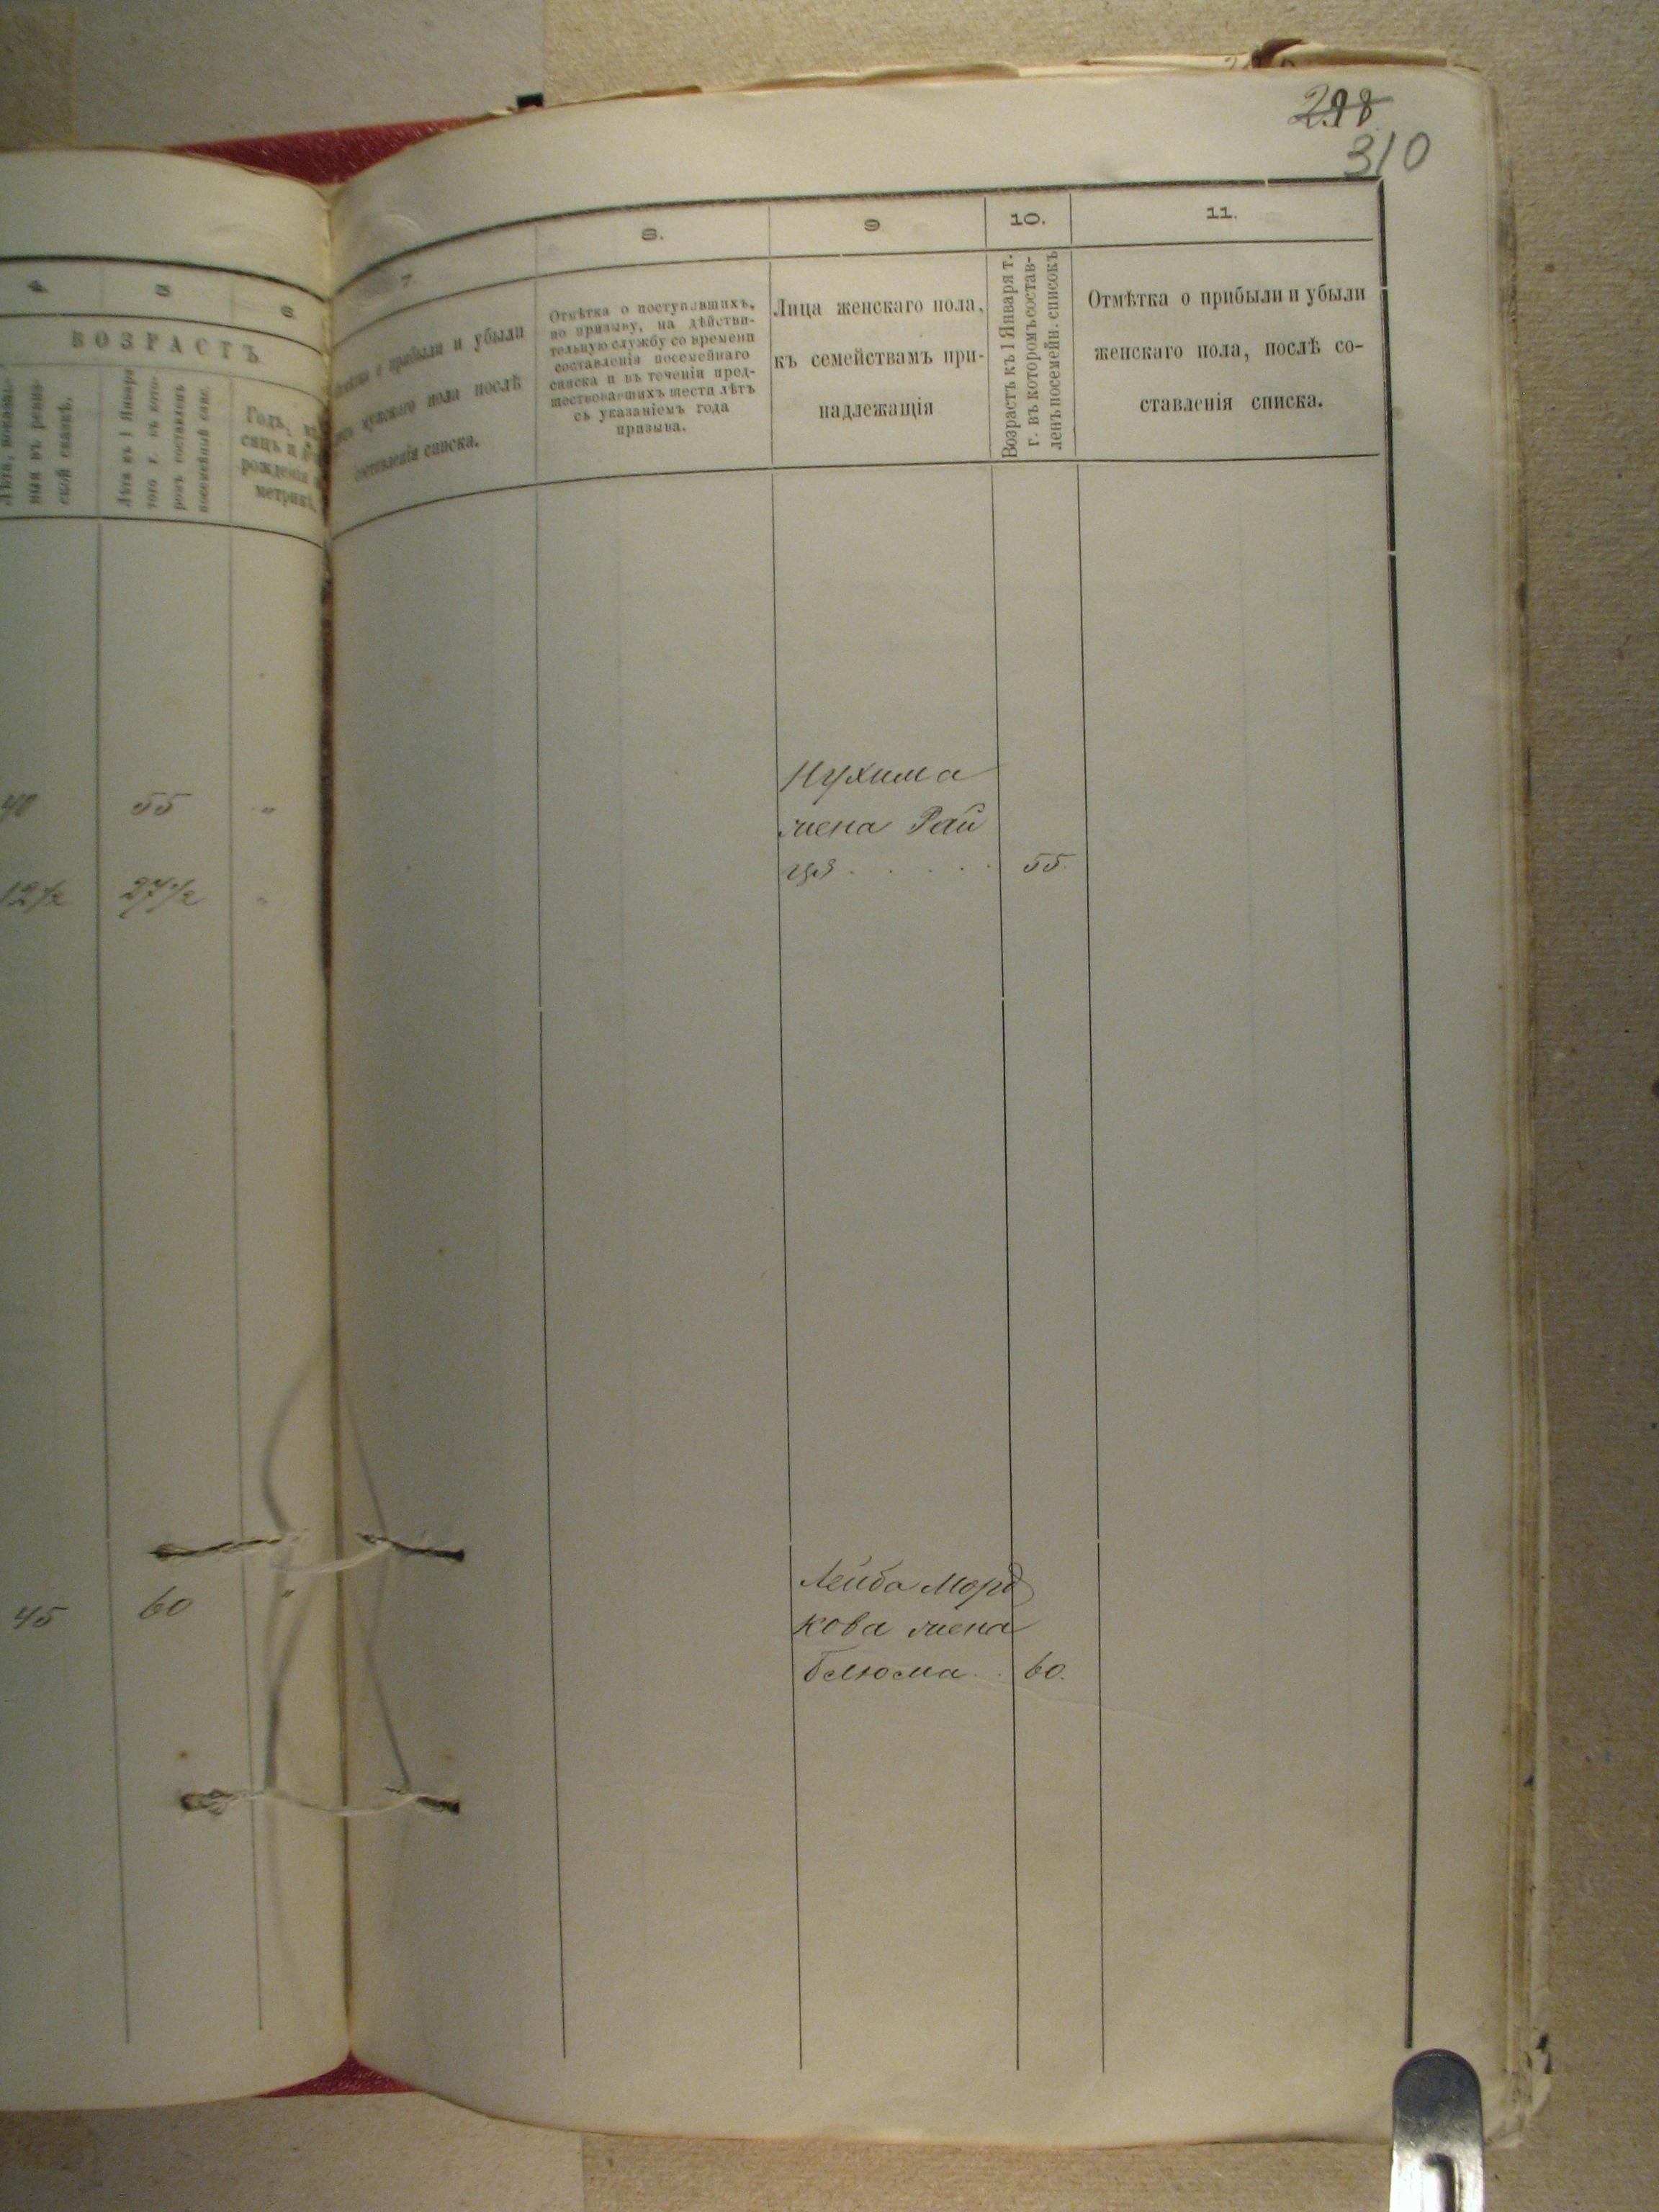 298
310
4
5
6
ВОЗРАСТЪ
Лѣта, показан-
ныя въ ревиз-
ской сказкѣ.
Лѣта къ 1 Января
того г. въ кото-
ромъ составленъ
посемейный спис.
Годъ, мѣ
сяцъ и
рожденія
метрик.
40
55
"
12 1/2
27 1/2
"
45
60
"
7.
8.
9
10.
11.
о прибыли и убыли
мужскаго пола послѣ
составленія списка.
Отмѣтка о поступившихъ,
по призыву, на дѣйстви-
тельную службу со времени
составленія посемейнаго
списка и въ теченіи пред-
шествовавшихъ шести лѣтъ
съ указаніемъ года
призыва.
Лица женскаго пола,
къ семействамъ при-
надлежащія
Возрастъ къ 1 Января т.
г. въ которомъ состав-
ленъ посемейн. списокъ
Отмѣтка о прибыли и убыли
женскаго пола, послѣ со-
ставленія списка.
Нухима
жена Рай
ця . . . . . 55.
Лейба Морд
кова жена
Блюма . . 60.